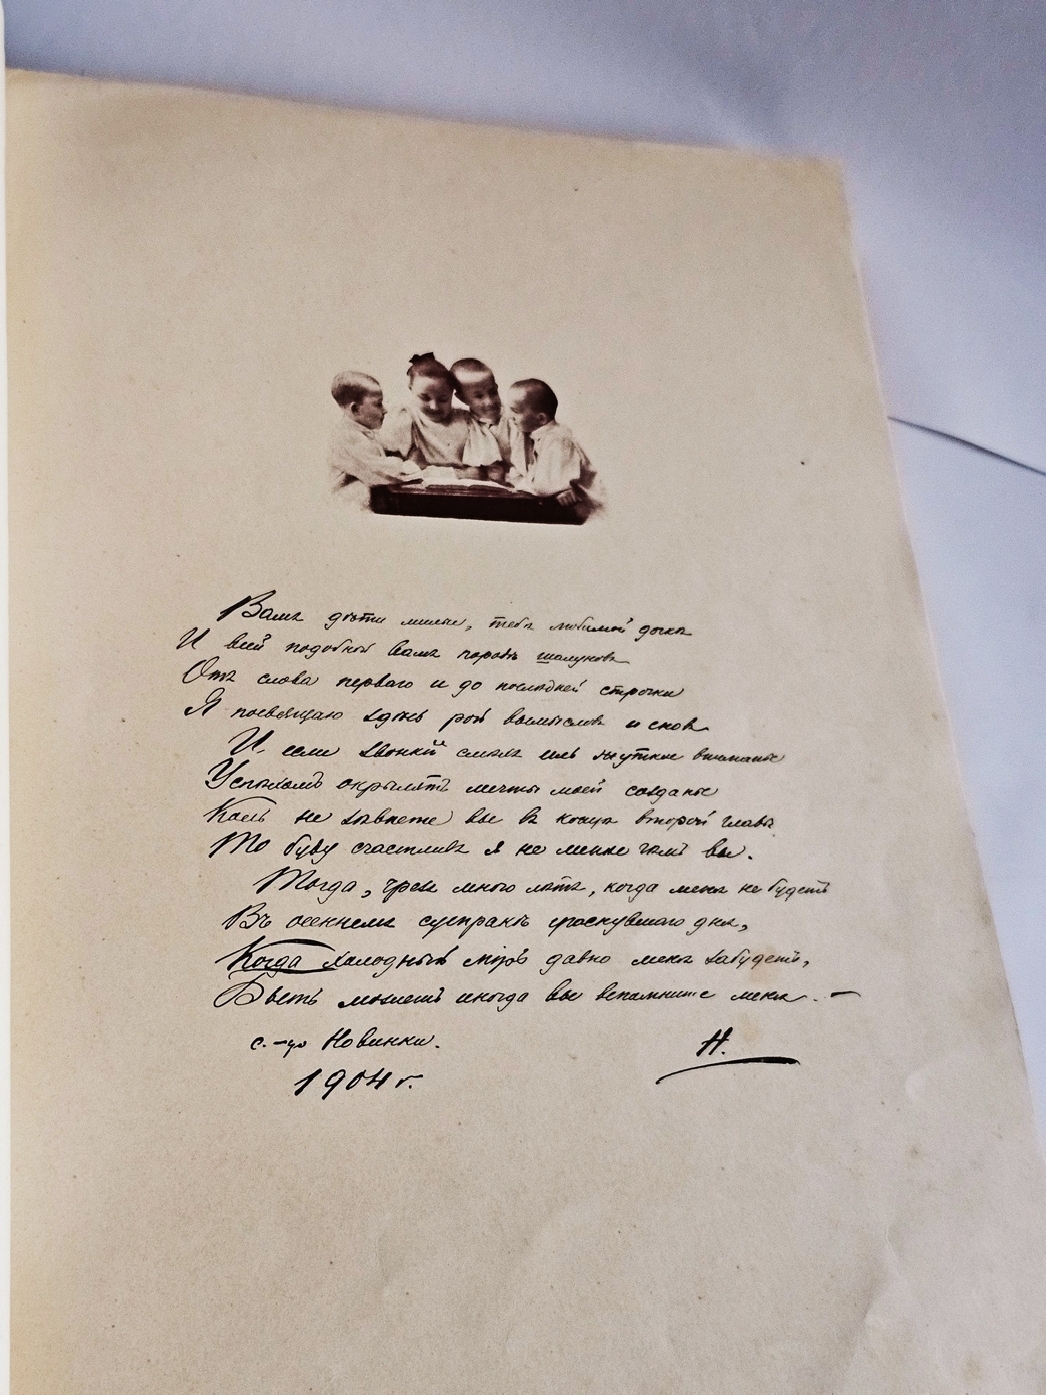 Вамъ дѣти милыя, тебѣ любимой дочкѣ
И всей подобной вамъ породѣ шалуновъ
Отъ слова перваго и до послѣдней строчки
Я посвящаю здѣсь рой вымысловъ и сновъ
И если звонкій смѣхъ иль жуткое вниманье
Успѣхомъ окрылятъ мечты моей созданье
Коль не зѣвнете вы въ концѣ второй главы
То буду счастливъ я не менѣе чѣмъ вы.
Тогда, чрезъ много лѣтъ, когда меня не будетъ
Въ осеннемъ сумракѣ уснувшаго дня,
Когда холодный міръ давно меня забудетъ,
Быть можетъ иногда вы вспомните меня. —
с-цо Новинки.
Н.
1904 г.